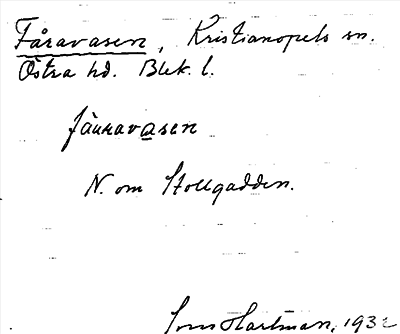 Fåravasen, Kristianopels sn.
Östra hd. Blek. l.
fåuravasen
N. om Stollgadden.
Hartman, 1932